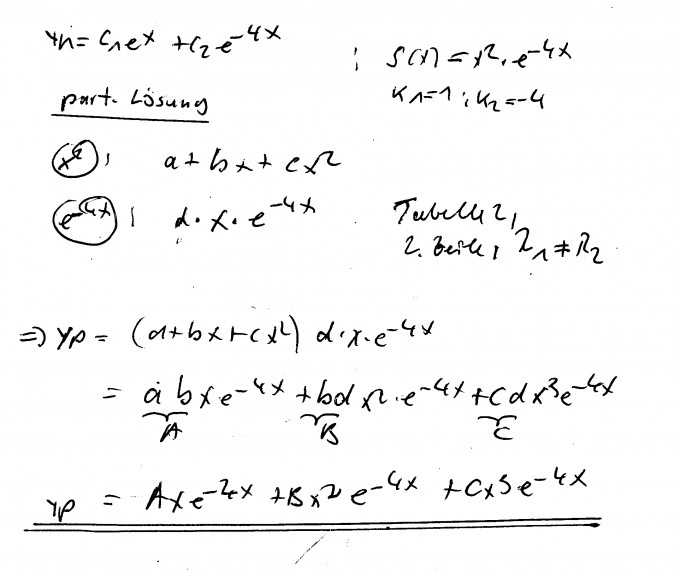 yh = C₁eˣ + C₂e⁻⁴ˣ ; S(x) = x²·e⁻⁴ˣ
k₁=1 ; k₂=-4
part. Lösung
x² : a + bx + cx²
e⁻⁴ˣ : d·x·e⁻⁴ˣ Tabelle 2,
2. Zeile, λ₁ ≠ λ₂
⇒ yp = (a+bx+cx²) d·x·e⁻⁴ˣ
= a b x e⁻⁴ˣ + bd x²·e⁻⁴ˣ + c d x³ e⁻⁴ˣ
A B C
yp = Axe⁻⁴ˣ + Bx² e⁻⁴ˣ + Cx³ e⁻⁴ˣ